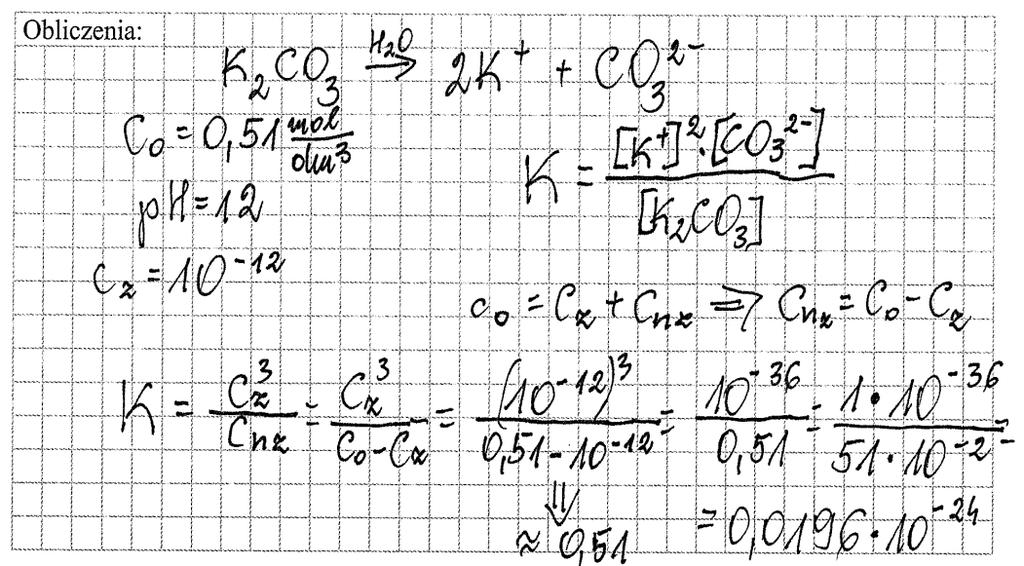 Obliczenia:
K₂CO₃ —H₂O→ 2K⁺ + CO₃²⁻
C₀ = 0,51 mol/dm³
K = [K⁺]²·[CO₃²⁻] / [K₂CO₃]
pH = 12
C_z = 10⁻¹²
C₀ = C_z + C_nz ⇒ C_nz = C₀ - C_z
K = C_z³/C_nz = C_z³/(C₀ - C_z) = (10⁻¹²)³/(0,51 - 10⁻¹²) = 10⁻³⁶/0,51 = 1·10⁻³⁶/51·10⁻² =
⇓
≈ 0,51
= 0,0196·10⁻²⁴